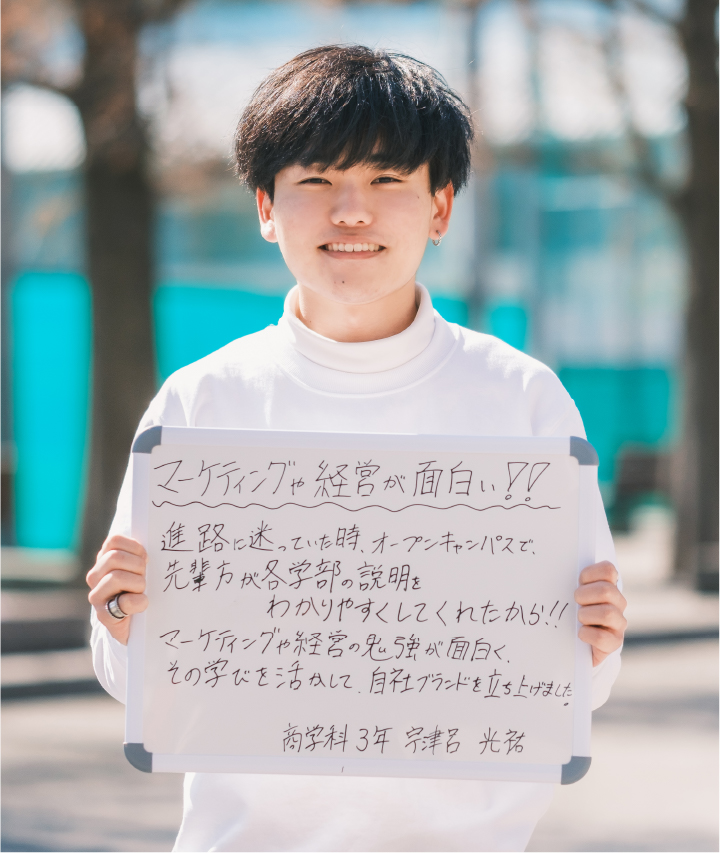 マーケティングや経営が面白い!!
進路に迷っていた時、オープンキャンパスで、
先輩方が各学部の説明を
わかりやすくしてくれたから!!
マーケティングや経営の勉強が面白く、
その学びを活かして、自社ブランドを立ち上げました!
商学科3年 宇津呂 光祐